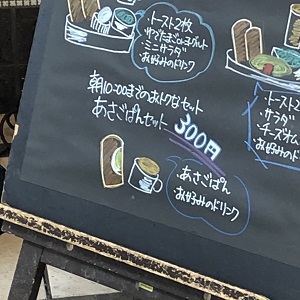 ・トースト2枚
ゆでたまごorヨーグルト
・ミニサラダ
・お好みのドリンク
・トースト2
・サラダ
・チーズオム
・お好みの
朝10:00までのおトクなセット
あさごぱんセット 300円
・あさごぱん
・お好みのドリンク